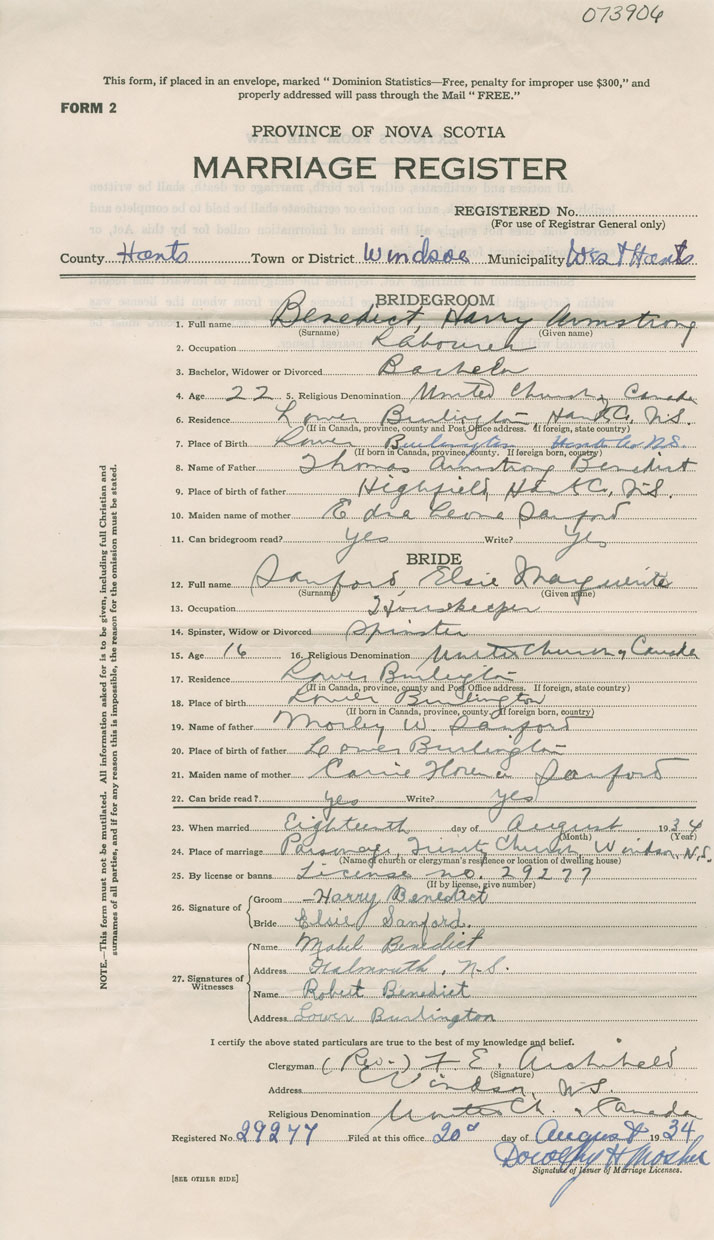 073906
This form, if placed in an envelope, marked "Dominion Statistics—Free, penalty for improper use $300," and
properly addressed will pass through the Mail "FREE."
FORM 2
PROVINCE OF NOVA SCOTIA
MARRIAGE REGISTER
REGISTERED No.
(For use of Registrar General only)
County Hants Town or District Windsor Municipality West Hants
BRIDEGROOM
1. Full name Benedict, Harry Armstrong
(Surname) (Given name)
2. Occupation Labourer
3. Bachelor, Widower or Divorced Bachelor
4. Age 22 5. Religious Denomination United Church of Canada
6. Residence Lower Burlington, Hants Co., N.S.
(If in Canada, province, county and Post Office address. If foreign, state country)
7. Place of Birth Lower Burlington Hants Co N.S.
(If born in Canada, province, county. If foreign born, country)
8. Name of Father Thomas Armstrong Benedict
9. Place of birth of father Highfield, Hants Co., N.S.
10. Maiden name of mother Edna Leone Sanford
11. Can bridegroom read? yes Write? Yes
BRIDE
12. Full name Sanford, Elsie Marguerite
(Surname) (Given name)
13. Occupation Housekeeper
14. Spinster, Widow or Divorced Spinster
15. Age 16 16. Religious Denomination United Church of Canada
17. Residence Lower Burlington
(If in Canada, province, county and Post Office address. If foreign, state country)
18. Place of birth Lower Burlington
(If born in Canada, province, county. If foreign born, country)
19. Name of father Morley W. Sanford
20. Place of birth of father Lower Burlington
21. Maiden name of mother Carrie Florence Sanford
22. Can bride read? yes Write? yes
23. When married Eighteenth day of August 1934
(Month) (Year)
24. Place of marriage Parsonage, Trinity Church, Windsor, N.S.
(Name of church or clergyman's residence or location of dwelling house)
25. By license or banns License no. 29277
(If by license, give number)
26. Signature of Groom Harry Benedict
Bride Elsie Sanford.
27. Signatures of Witnesses Name Mabel Benedict
Address Falmouth, N.S.
Name Robert Benedict
Address Lower Burlington
I certify the above stated particulars are true to the best of my knowledge and belief.
Clergyman (Rev.) F. E. Archibald
(Signature)
Address Windsor, N.S.
Religious Denomination United Ch. of Canada
Registered No. 29277 Filed at this office 20d day of August 1934
Dorothy H Mosher
Signature of Issuer of Marriage Licenses.
[SEE OTHER SIDE]
NOTE.—This form must not be mutilated. All information asked for is to be given, including full Christian and
surnames of all parties, and if for any reason this is impossible, the reason for the omission must be stated.